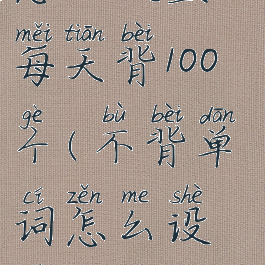 měi tiān bèi
每天背100
gè bù bèi dān
个(不背单
cí zěn me shè
词怎么设